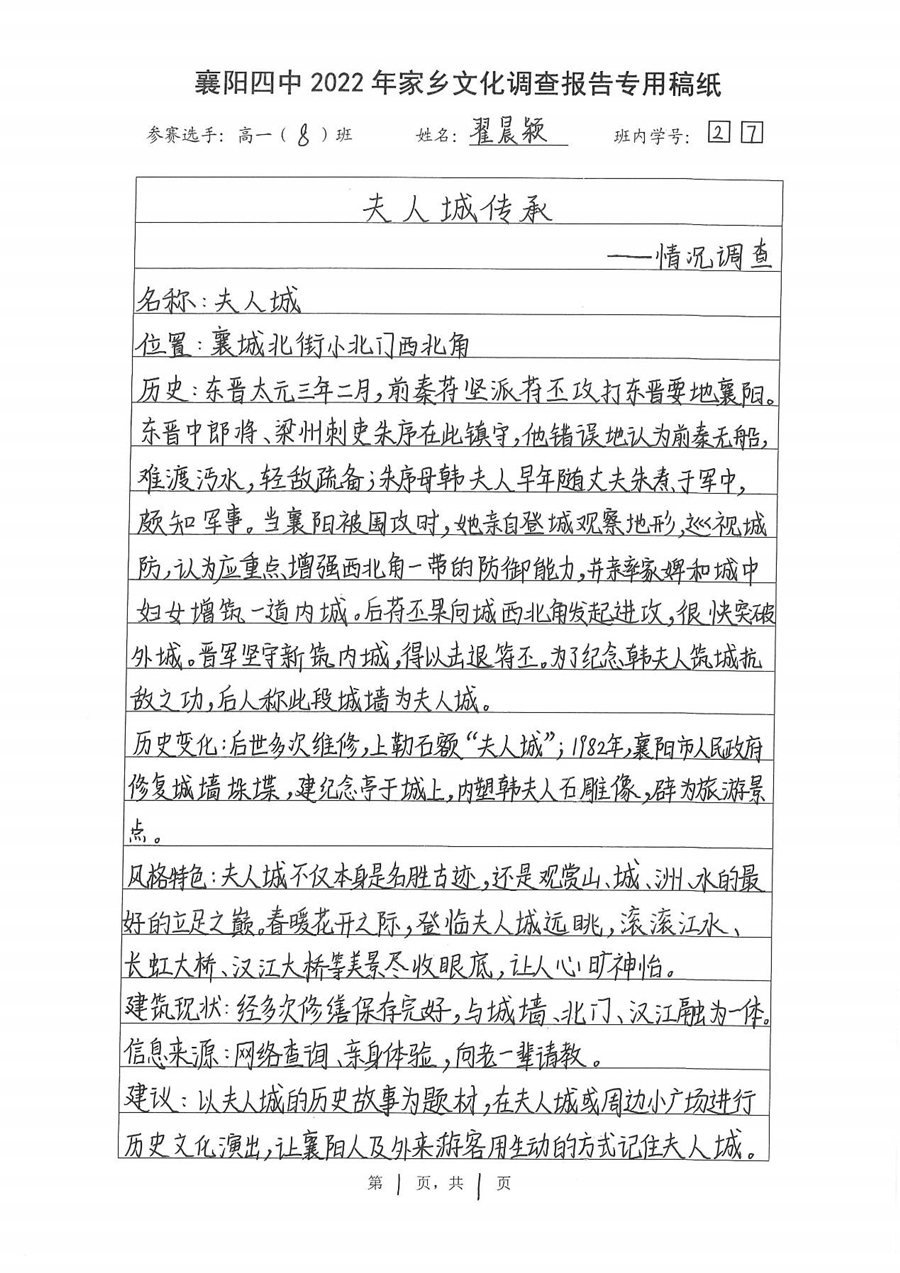 襄阳四中 2022 年家乡文化调查报告专用稿纸
参赛选手：高一（8）班 姓名：翟晨颍 班内学号：2 7
夫人城传承
——情况调查
名称：夫人城
位置：襄城北街小北门西北角
历史：东晋太元三年二月，前秦苻坚派苻丕攻打东晋要地襄阳。
东晋中郎将、梁州刺吏朱序在此镇守，他错误地认为前秦无船，
难渡沔水，轻敌疏备；朱序母韩夫人早年随丈夫朱焘于军中，
颇知军事。当襄阳被围攻时，她亲自登城观察地形，巡视城
防，认为应重点增强西北角一带的防御能力，并亲率家婢和城中
妇女增筑一道内城。后苻丕果向城西北角发起进攻，很快突破
外城。晋军坚守新筑内城，得以击退符丕。为了纪念韩夫人筑城抗
敌之功，后人称此段城墙为夫人城。
历史变化：后世多次维修，上勒石额“夫人城”；1982年，襄阳市人民政府
修复城墙垛堞，建纪念亭于城上，内塑韩夫人石雕像，辟为旅游景
点。
风格特色：夫人城不仅本身是名胜古迹，还是观赏山、城、洲、水的最
好的立足之巅。春暖花开之际，登临夫人城远眺，滚滚江水、
长虹大桥、汉江大桥等美景尽收眼底，让人心旷神怡。
建筑现状：经多次修缮保存完好，与城墙、北门、汉江融为一体。
信息来源：网络查询、亲身体验，向老一辈请教。
建议：以夫人城的历史故事为题材，在夫人城或周边小广场进行
历史文化演出，让襄阳人及外来游客用生动的方式记住夫人城。
第 1 页，共 1 页